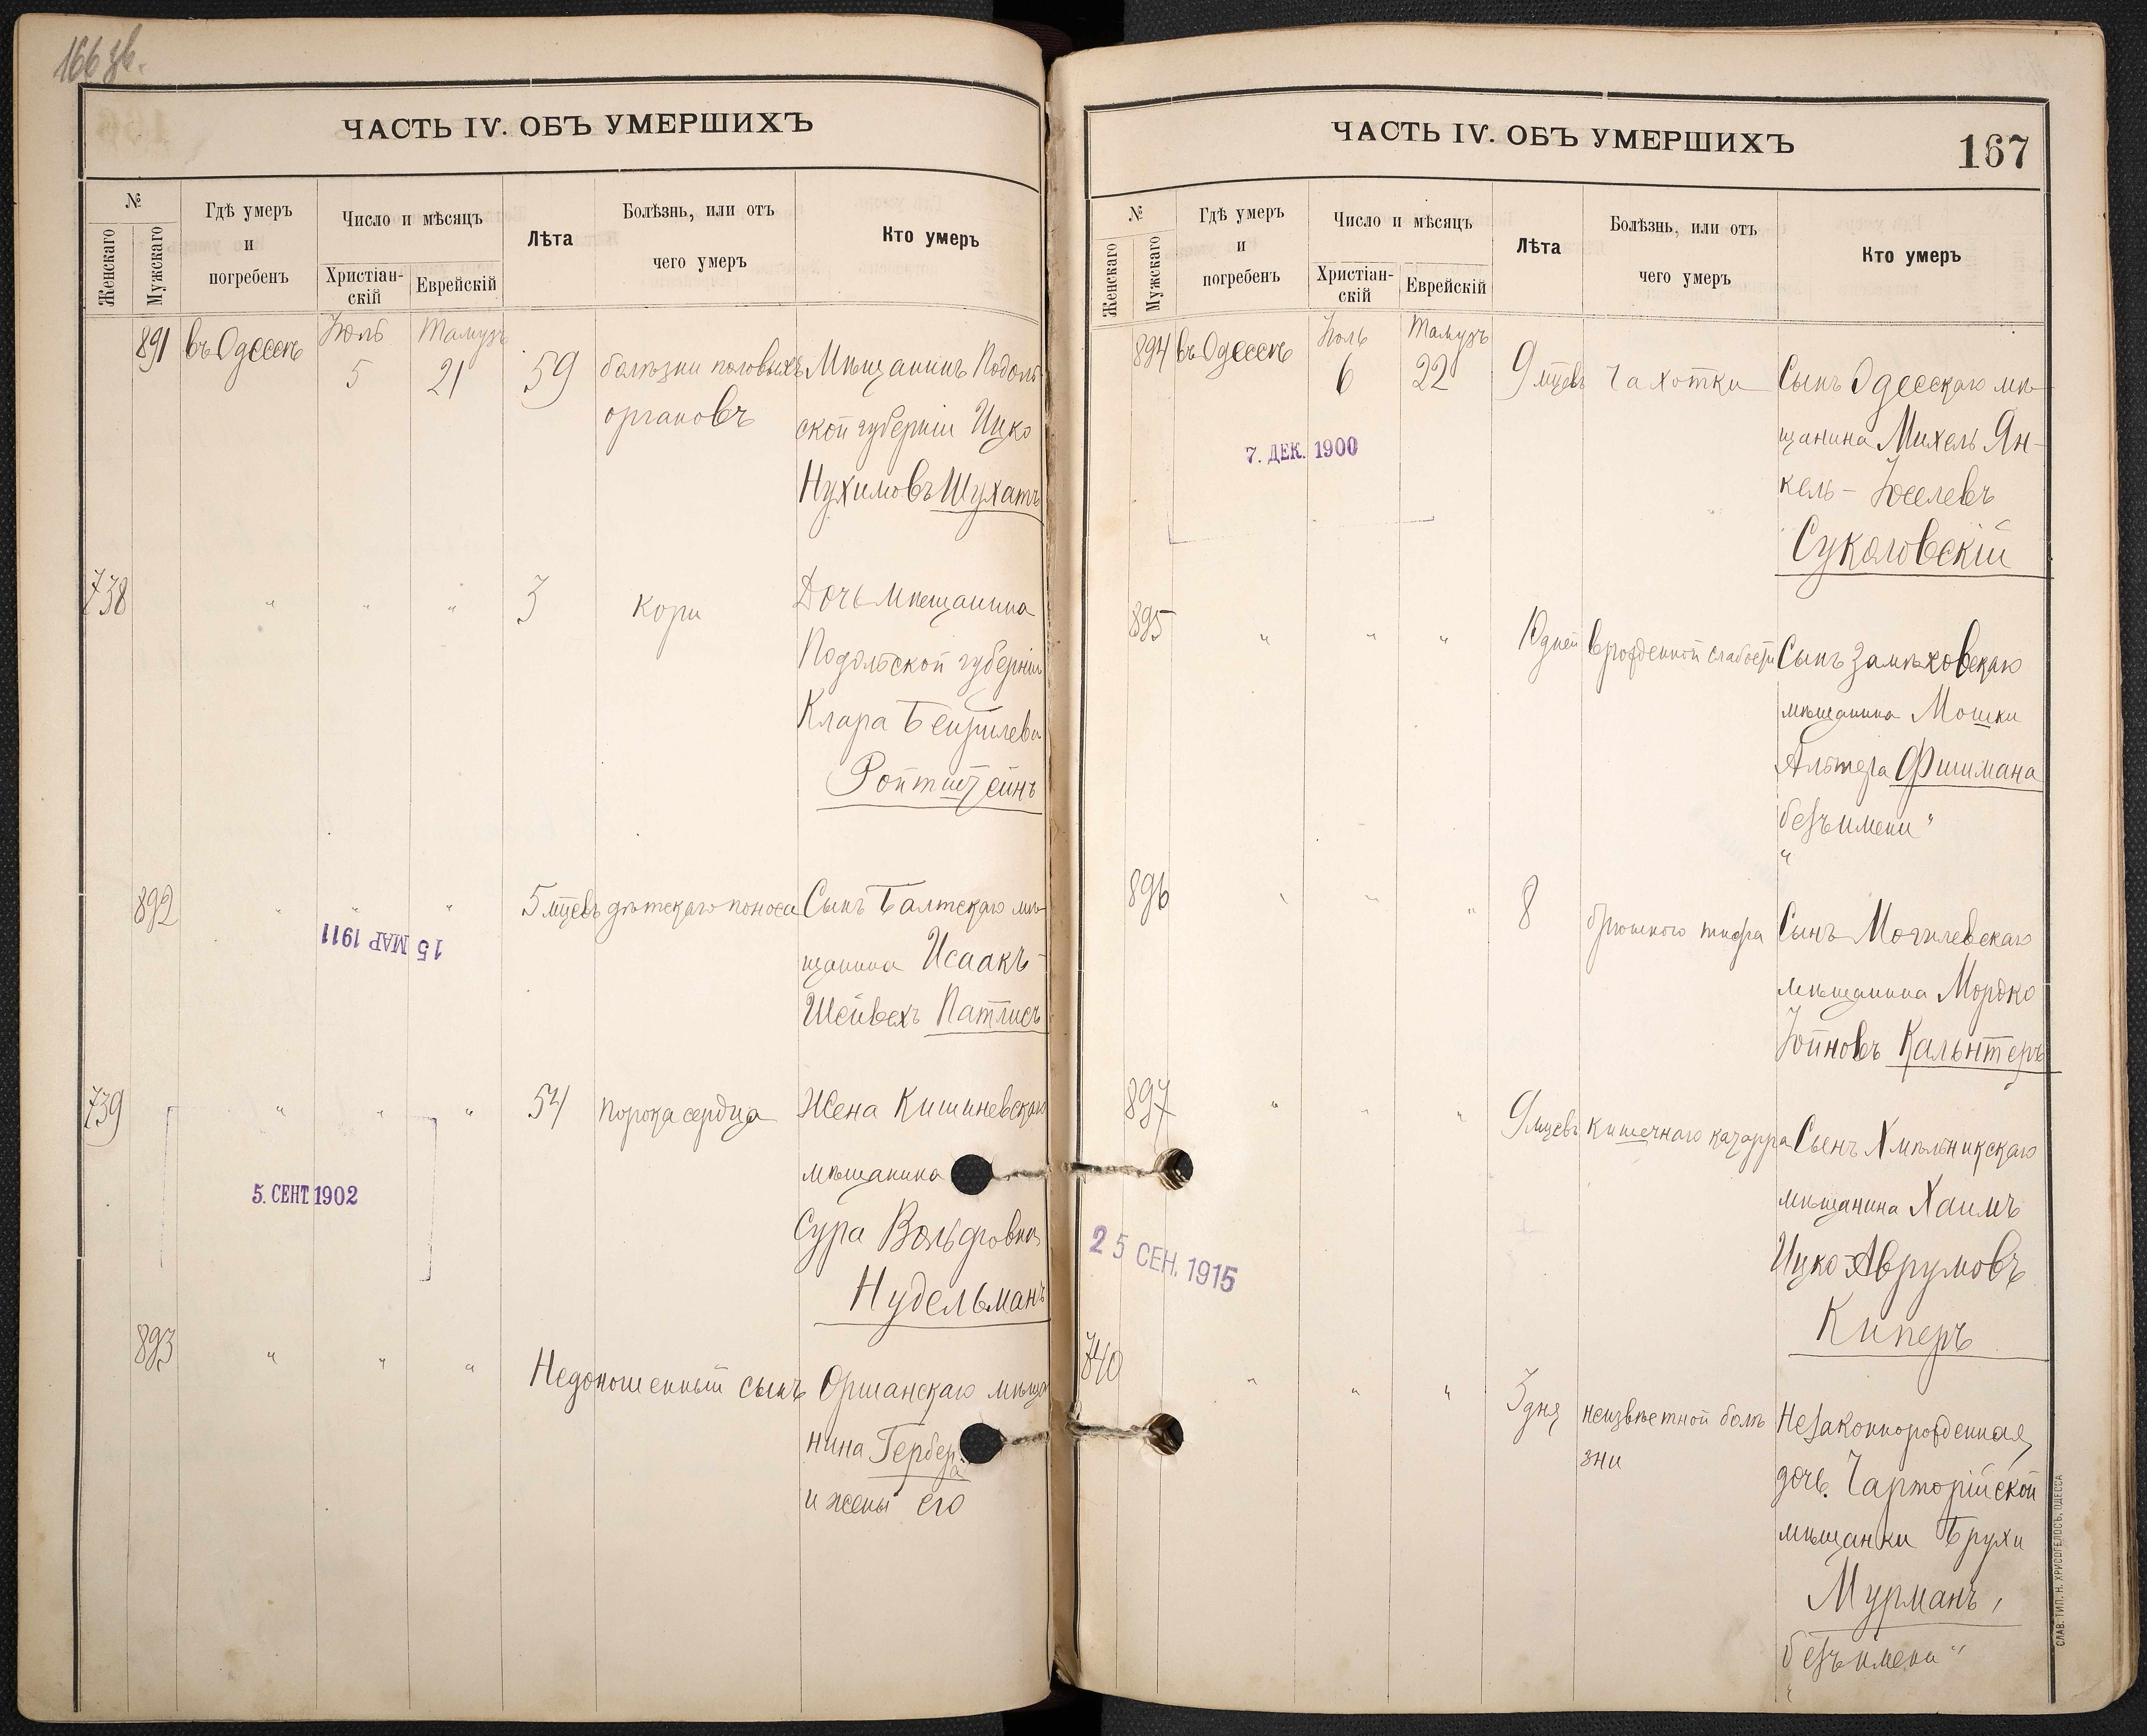 166 зв.
ЧАСТЬ IV. ОБЪ УМЕРШИХЪ
№
Женскаго
Мужскаго
Гдѣ умеръ
и
погребенъ
Число и мѣсяцъ
Христіан-
скій
Еврейскій
Лѣта
Болѣзнь, или отъ
чего умеръ
Кто умеръ
891 въ Одессѣ Іюль 5 Тамузъ 21 59 болѣзни половыхъ Мѣщанинъ Подоль
органовъ ской губерніи Ицко
Нухимовъ Шухатъ
738 " " " 3 кори Дочь мѣщанина
Подольской губерніи
Клара
Ройтштейнъ
892 " " " 5 мцевъ дѣтскаго поноса Сынъ Балтскаго мѣ-
15 МАР 1911
щанина Исаакъ-
Шейвехъ Патлисъ
739 " " " 54 порока сердца Жена Кишиневскаго
мѣщанина
5. СЕНТ. 1902
Сура Вольфовна
Нудельманъ
893 " " " Недоношенный сынъ Оршанскаго мѣща
нина Гербера
и жены его
ЧАСТЬ IV. ОБЪ УМЕРШИХЪ
167
№
Женскаго
Мужскаго
Гдѣ умеръ
и
погребенъ
Число и мѣсяцъ
Христіан-
скій
Еврейскій
Лѣта
Болѣзнь, или отъ
чего умеръ
Кто умеръ
894 въ Одессѣ Іюль 6 Тамузъ 22 9 мцевъ чахотки Сынъ Одесскаго мѣ-
7. ДЕК. 1900
щанина Михель Ян-
кель-Іоселевъ
Суколовскій
895 " " " 10 дней врожденной слабости Сынъ Замѣховскаго
мѣщанина Мошки
Альтера Фишмана
безъ имени"
"
896 " " " 8 брюшного тифа Сынъ Могилевскаго
мѣщанина Мордко
Іойновъ Кальнтеръ
897 " " " 9 мцевъ кишечнаго катарра Сынъ Хмѣльникскаго
мѣщанина Хаимъ
25 СЕН. 1915
Ицко-Аврумовъ
Киперъ
740 " " " 3 дня неизвѣстной болѣ Незаконнорожденная
зни дочь Чарторійской
мѣщанки Брухи
Мурманъ,
безъ имени"
"
СЛАВ. ТИП. Н. ХРИСОГЕЛОСЪ, ОДЕССА